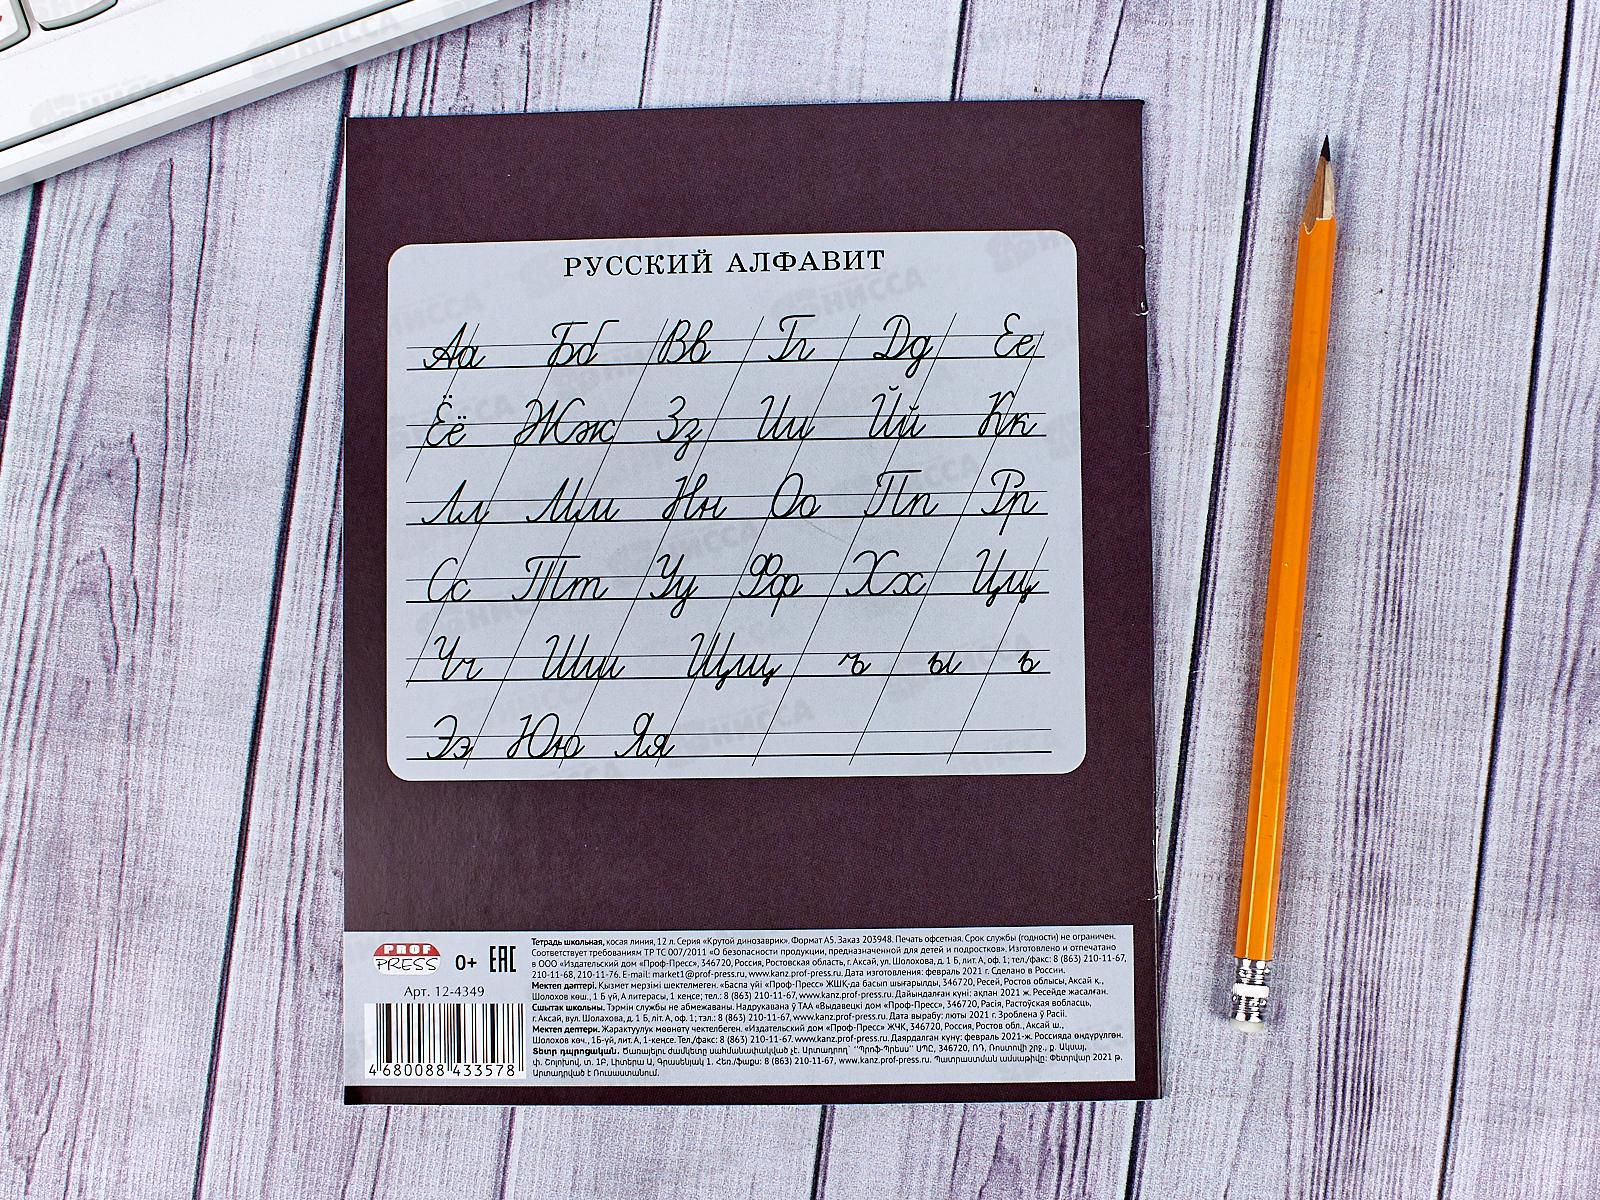 РУССКИЙ АЛФАВИТ
Аа Бб Вв Гг Дд Ее
Ёё Жж Зз Ии Йй Кк
Лл Мм Нн Оо Пп Рр
Сс Тт Уу Фф Хх Цц
Чч Шш Щщ ъ ы ь
Ээ Юю Яя
PROF
PRESS
0+ ЕАС
Арт. 12-4349
4 680088 433578
Тетрадь школьная, косая линия, 12 л. Серия «Крутой динозаврик». Формат А5. Заказ 203948. Печать офсетная. Срок службы (годности) не ограничен.
Соответствует требованиям ТР ТС 007/2011 «О безопасности продукции, предназначенной для детей и подростков». Изготовлено и отпечатано
в ООО «Издательский дом «Проф-Пресс», 346720, Россия, Ростовская область, г. Аксай, ул. Шолохова, д. 1 Б, лит. А, оф. 1; тел./факс: 8 (863) 210-11-67,
210-11-68, 210-11-76. E-mail: market1@prof-press.ru, www.kanz.prof-press.ru. Дата изготовления: февраль 2021 г. Сделано в России.
Мектеп дәптері. Қызмет мерзімі шектелмеген. «Баспа үйі «Проф-Пресс» ЖШҚ-да басып шығарылды, 346720, Ресей, Ростов облысы, Аксай қ.,
Шолохов көш., 1 Б үй, А литерасы, 1 кеңсе; тел.: 8 (863) 210-11-67, www.kanz.prof-press.ru. Дайындалған күні: ақпан 2021 ж. Ресейде жасалған.
Сшытак школьны. Тэрмін службы не абмежаваны. Надрукавана ў ТАА «Выдавецкі дом «Проф-Пресс», 346720, Расія, Растоўская вобласць,
г. Аксай, вул. Шолахова, д. 1 Б, літ. А, оф. 1; тэл.: 8 (863) 210-11-67, www.kanz.prof-press.ru. Дата вырабу: люты 2021 г. Зроблена ў Расіі.
Мектеп дептери. Жарактуулук мөөнөтү чектелбеген. «Издательский дом «Проф-Пресс» ЖЧК, 346720, Россия, Ростов обл., Аксай ш.,
Шолохов көч., 1Б-үй, лит. А, 1-кеңсе. Тел./факс: 8 (863) 210-11-67, www.kanz.prof-press.ru. Даярдалган күнү: февраль 2021-ж. Россияда өндүрүлгөн.
Տետր դպրոցական. Ծառայելու ժամկետը սահմանափակված չէ. Արտադրող՝ "Պրոֆ-Պրեսս" ՍՊԸ, 346720, ՌԴ, Ռոստովի շրջ., ք. Ակսայ,
փ. Շոլոխով, տ. 1Բ, Լիտերա Ա, Գրասենյակ 1. Հեռ./ֆաքս: 8 (863) 210-11-67, www.kanz.prof-press.ru. Պատրաստման ամսաթիվը: Փետրվար 2021 թ.
Արտադրված է Ռուսաստանում.